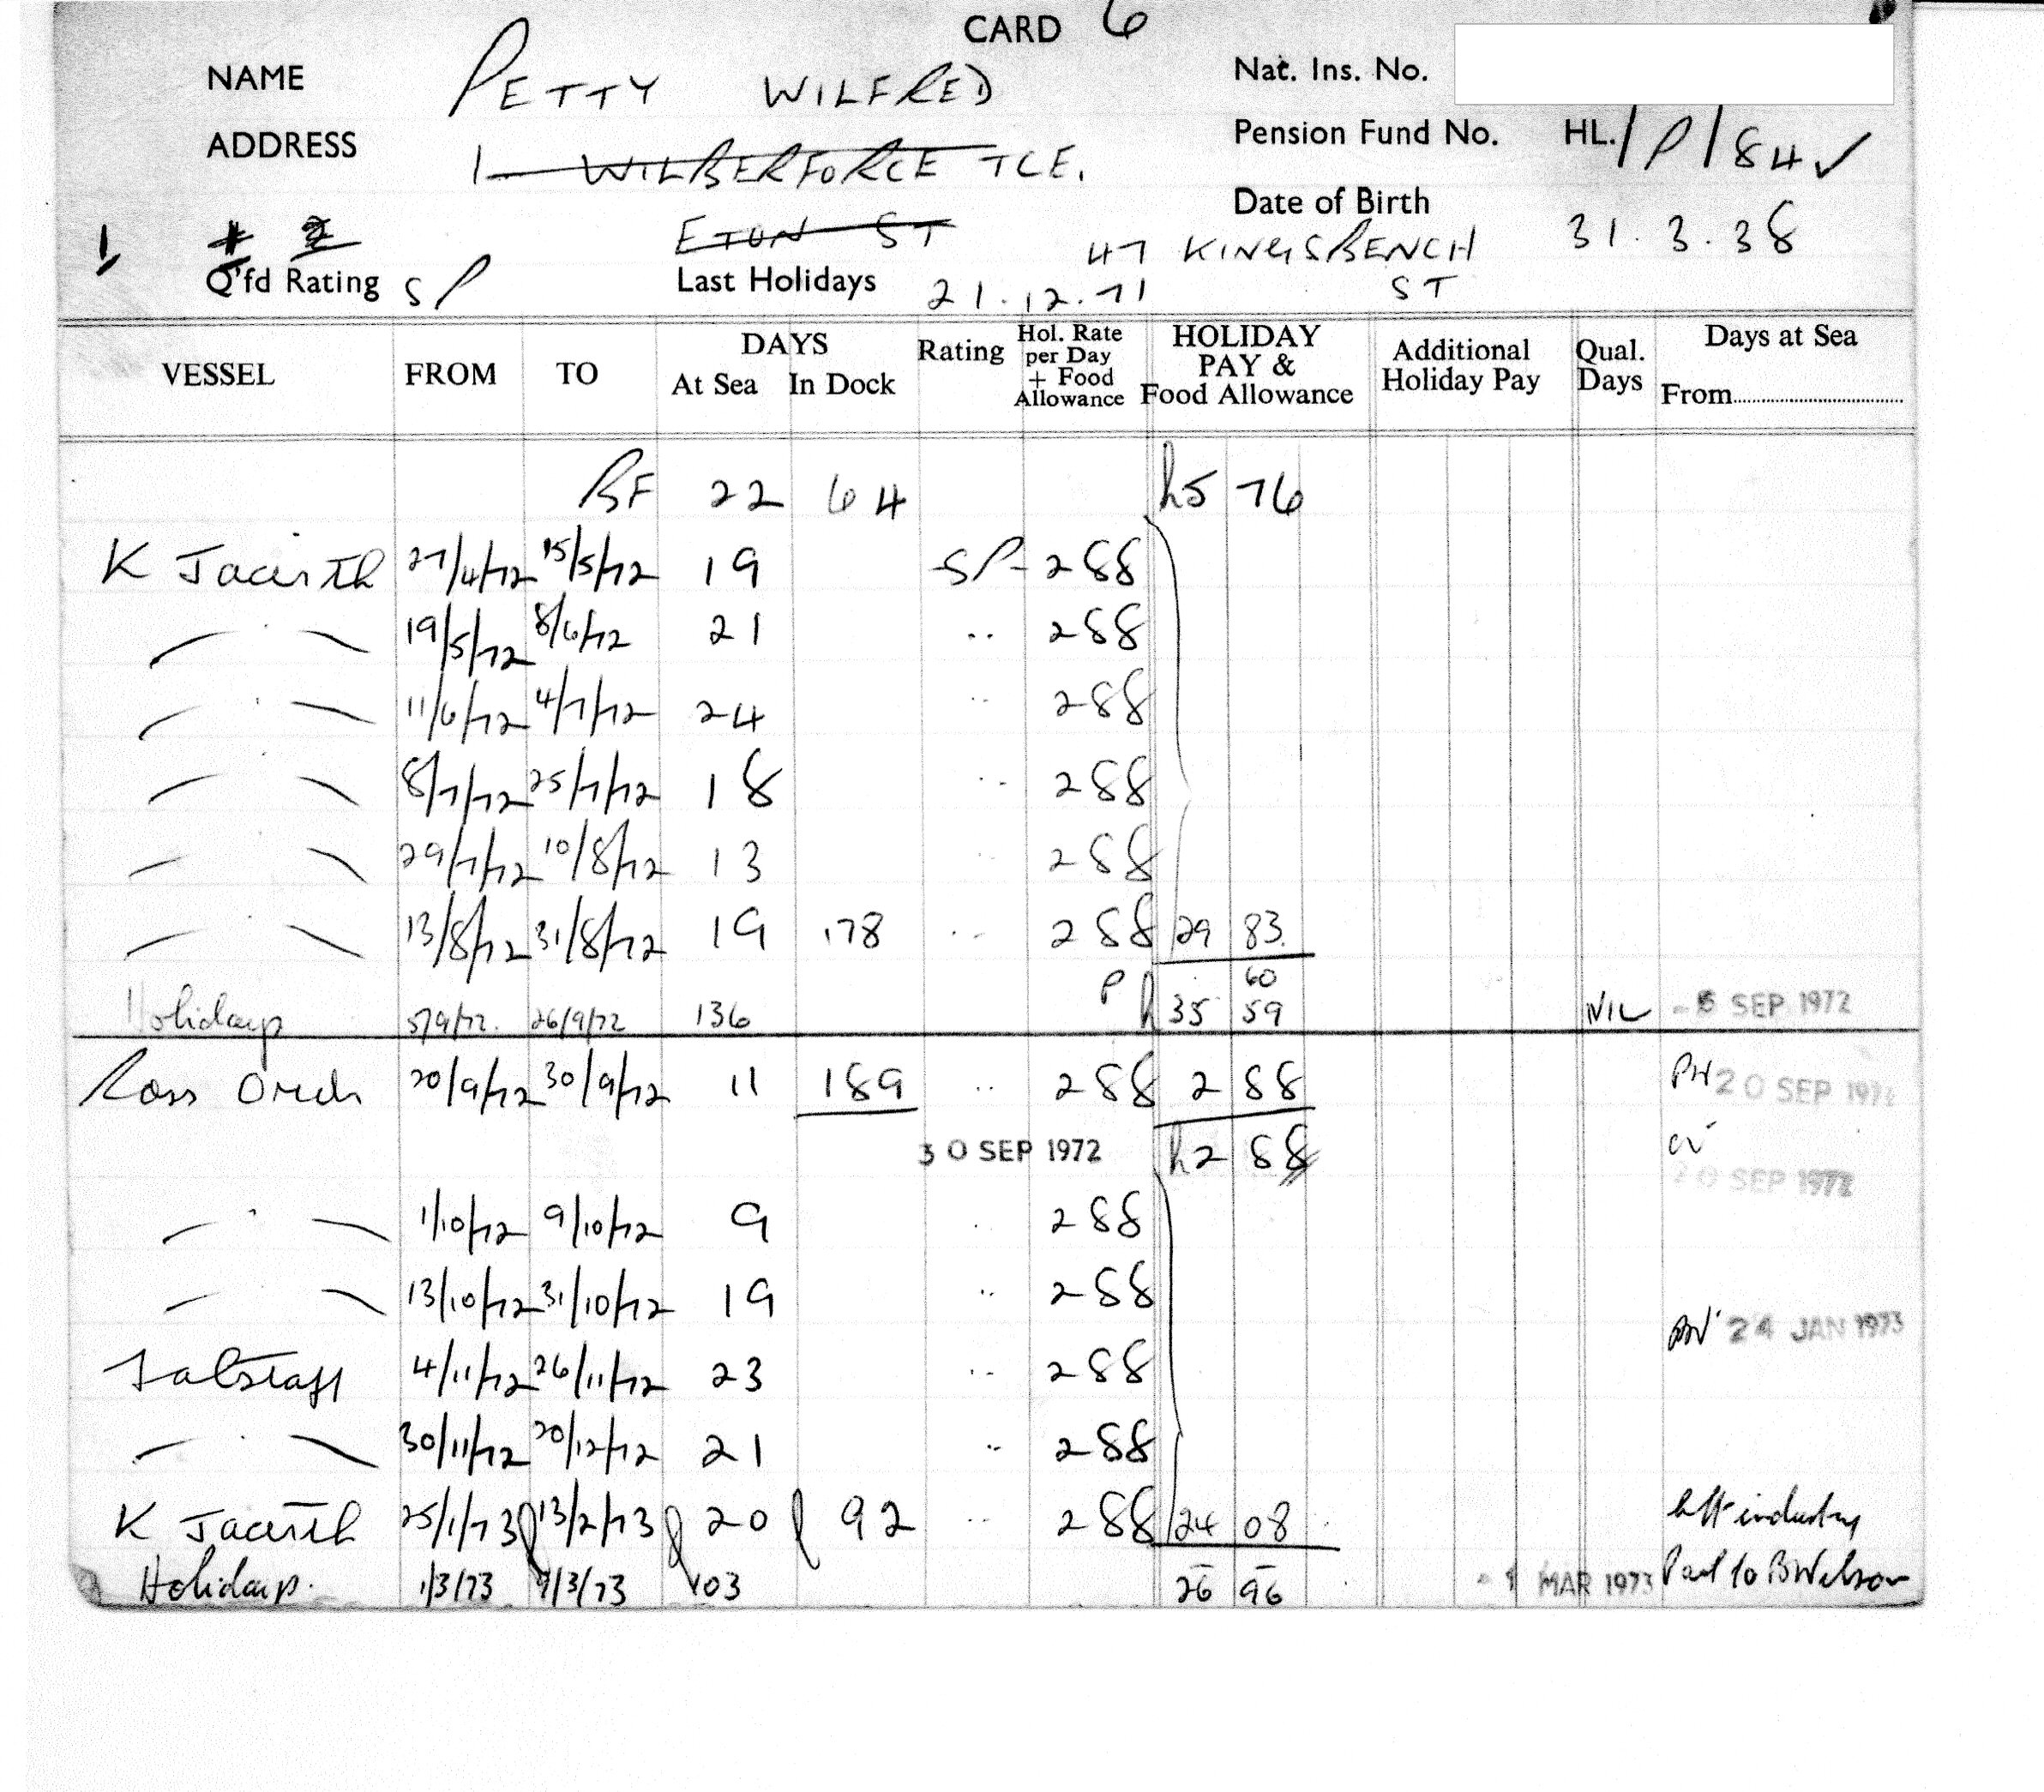 CARD 6
NAME PETTY WILFRED Nat. Ins. No.
ADDRESS 1 WILBERFORCE TCE. Pension Fund No. HL./P/84 ✓
ETON ST Date of Birth 31.3.38
1 47 KINGSBENCH ST
Q'fd Rating SP Last Holidays 21.12.71
VESSEL FROM TO DAYS At Sea In Dock Rating Hol. Rate per Day + Food Allowance HOLIDAY PAY & Food Allowance Additional Holiday Pay Qual. Days Days at Sea From
BF 22 64 h5 76
K Jacinth 27/4/72 15/5/72 19 SP 288
" 19/5/72 8/6/72 21 " 288
" 11/6/72 4/7/72 24 " 288
" 8/7/72 25/7/72 18 " 288
" 29/7/72 10/8/72 13 " 288
" 13/8/72 31/8/72 19 178 " 288 29 83
60
Holidays 5/9/72 26/9/72 136 P h 35 59 NIL - 5 SEP 1972
Ross Orch 20/9/72 30/9/72 11 189 " 288 2 88 PW 20 SEP 1972
30 SEP 1972 h2 88
20 SEP 1972
" 1/10/72 9/10/72 9 " 288
" 13/10/72 31/10/72 19 " 288
24 JAN 1973
Falstaff 4/11/72 26/11/72 23 " 288
" 30/11/72 20/12/72 21 " 288
K Jacinth 25/1/73 13/2/73 20 92 " 288 24 08 left industry
Holidays. 1/3/73 9/3/73 103 26 96 - 1 MAR 1973 Paid to B Wilson